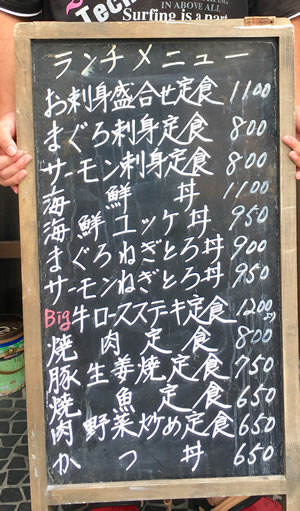 Tech
IN ABOVE ALL
Surfing is a part
ランチメニュー
お刺身盛合せ定食 1100
まぐろ刺身定食 800
サーモン刺身定食 800
海鮮丼 1100
海鮮ユッケ丼 950
まぐろねぎとろ丼 900
サーモンねぎとろ丼 950
Big牛ロースステーキ定食 1200より
焼肉定食 800
豚生姜焼定食 750
焼魚定食 650
肉野菜炒め定食 650
かつ丼 650